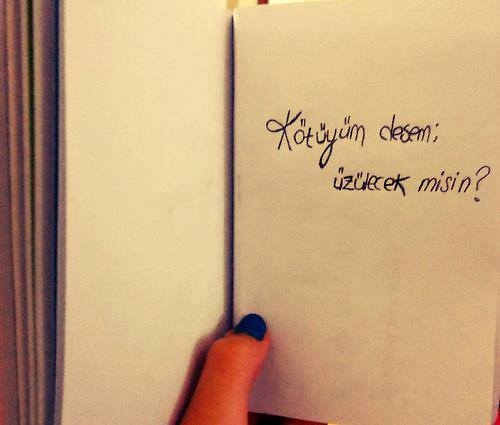 Kötüyüm desem;
üzülecek misin?